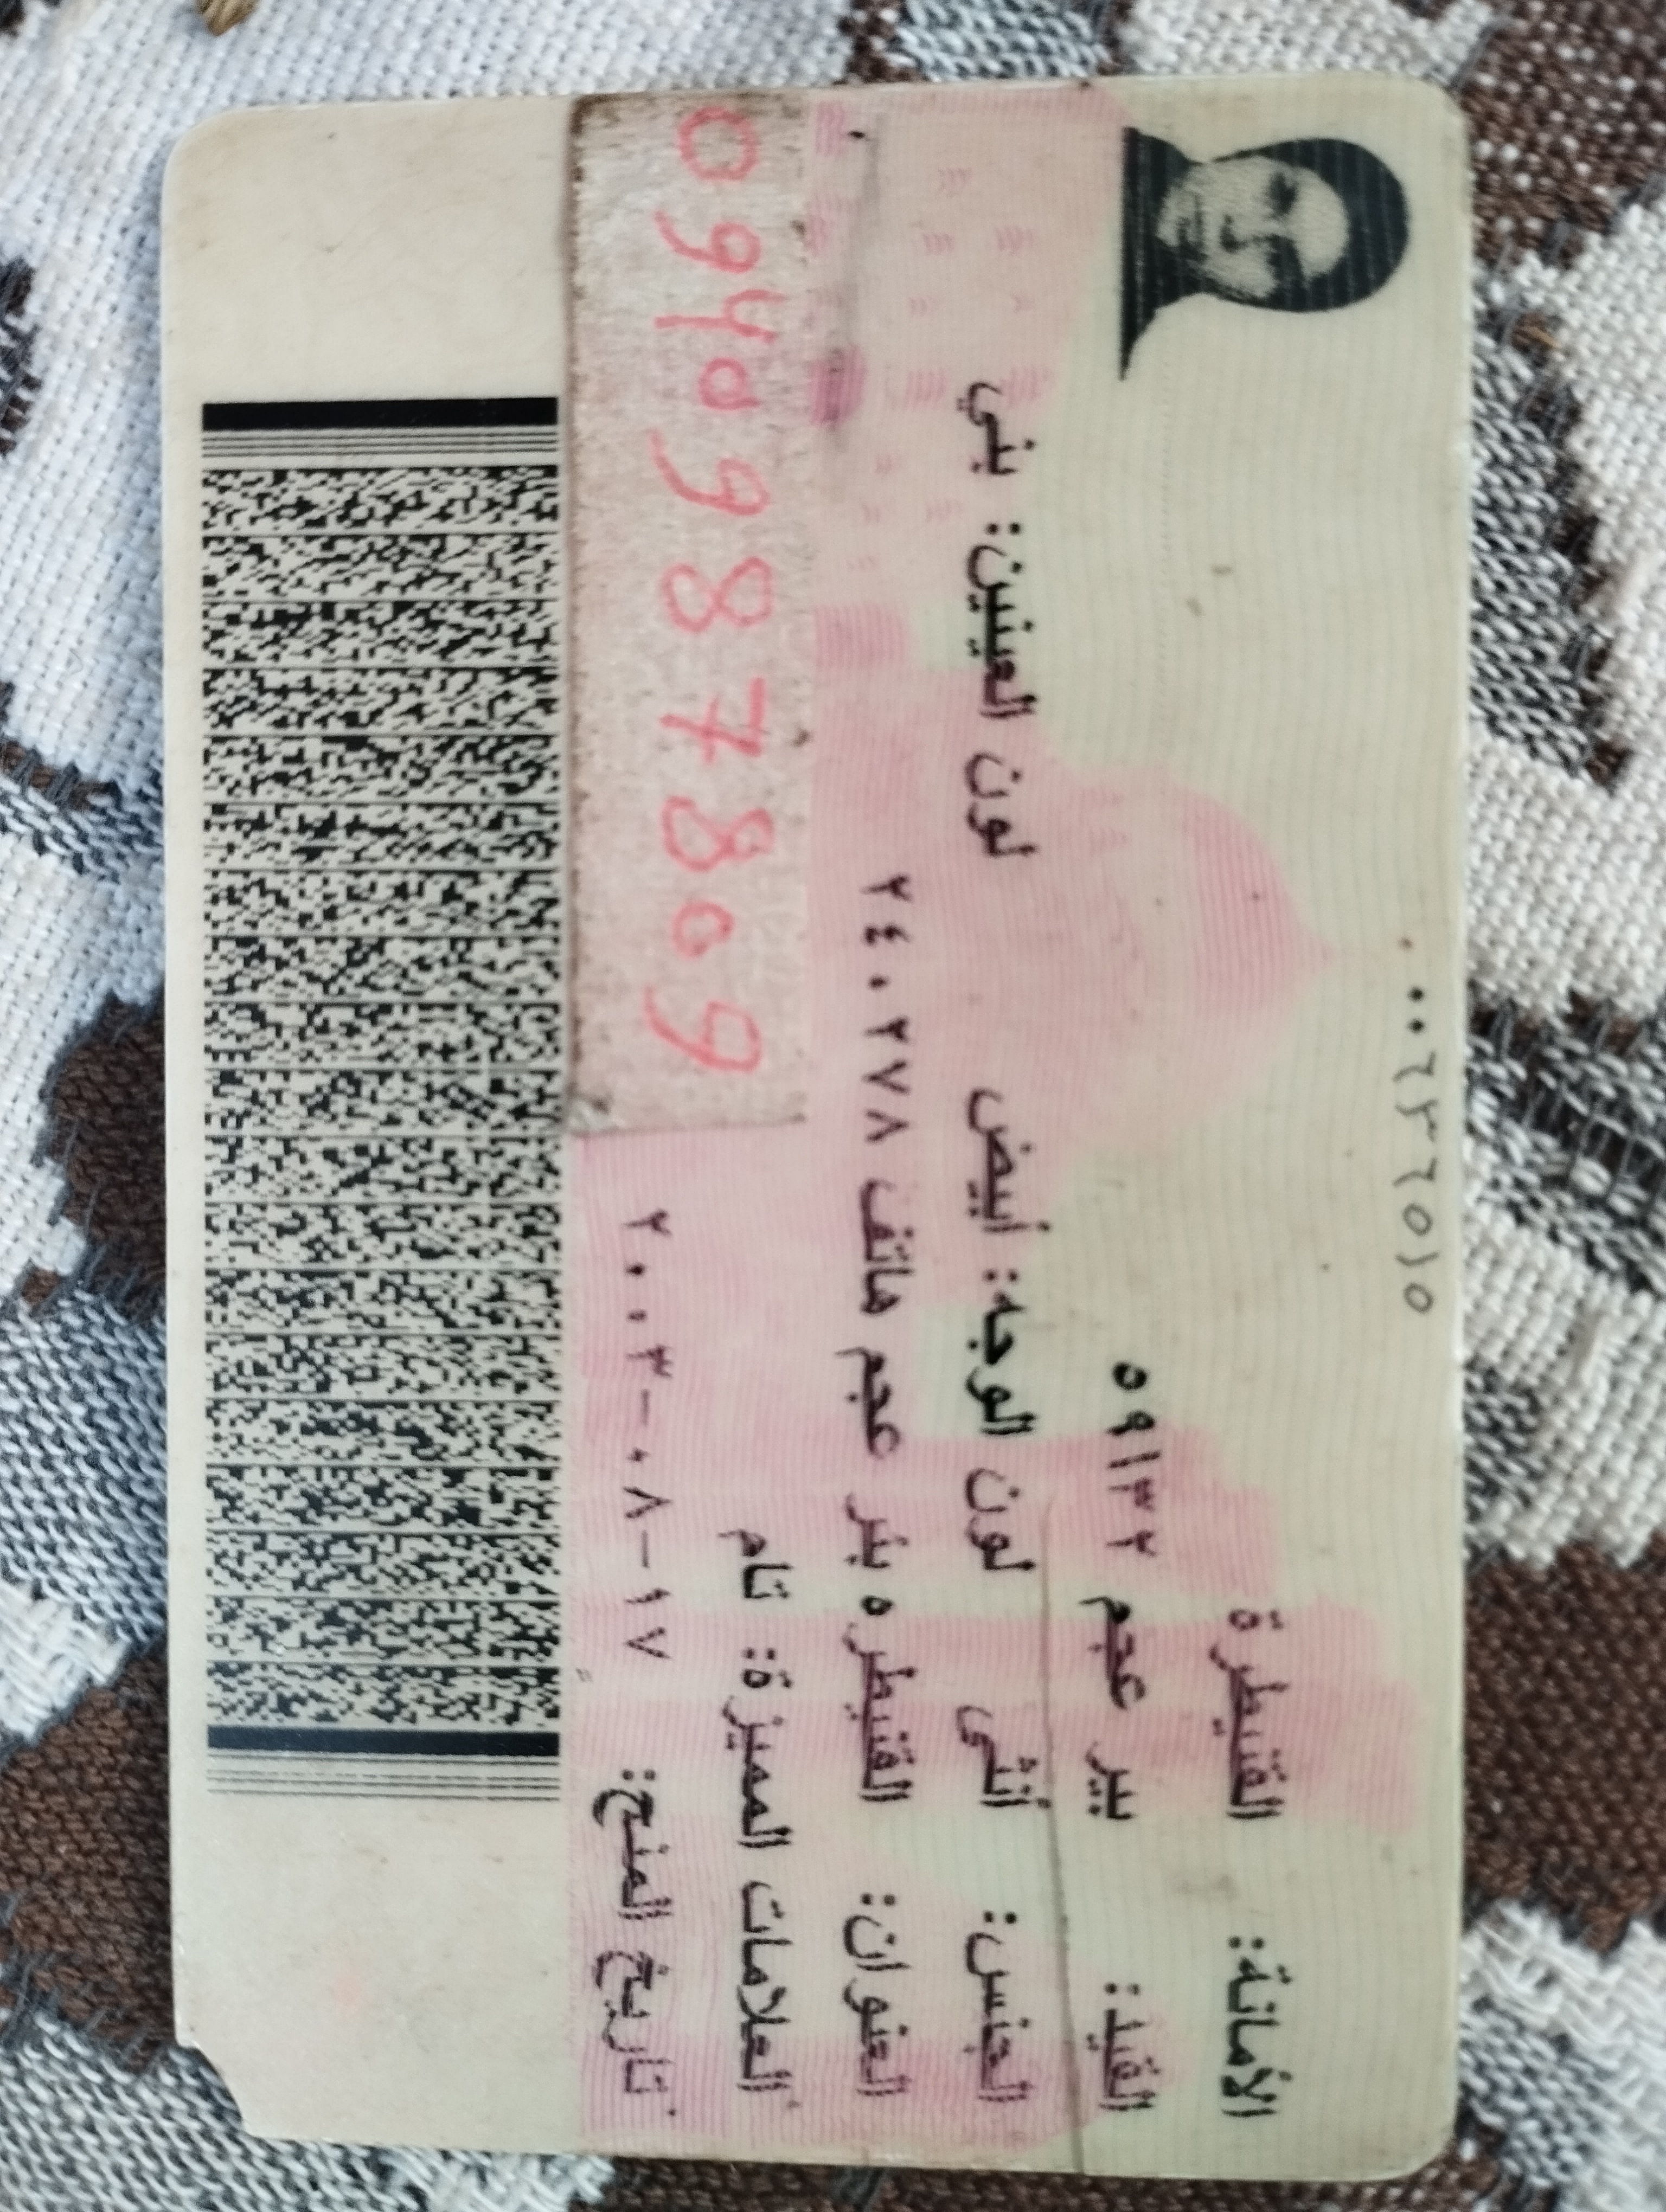 ٠٠٠٦٢٢٦٥١٥
الأمانة: القنيطرة
القيد: بير عجم ٥٩١٣٢
الجنس: أنثى لون الوجه: أبيض لون العينين: بني
العنوان: القنيطره بئر عجم هاتف ٢٤٠٢٧٨
العلامات المميزة: تام
تاريخ المنح: ٢٠٠٣-٠٨-١٧
0940987809